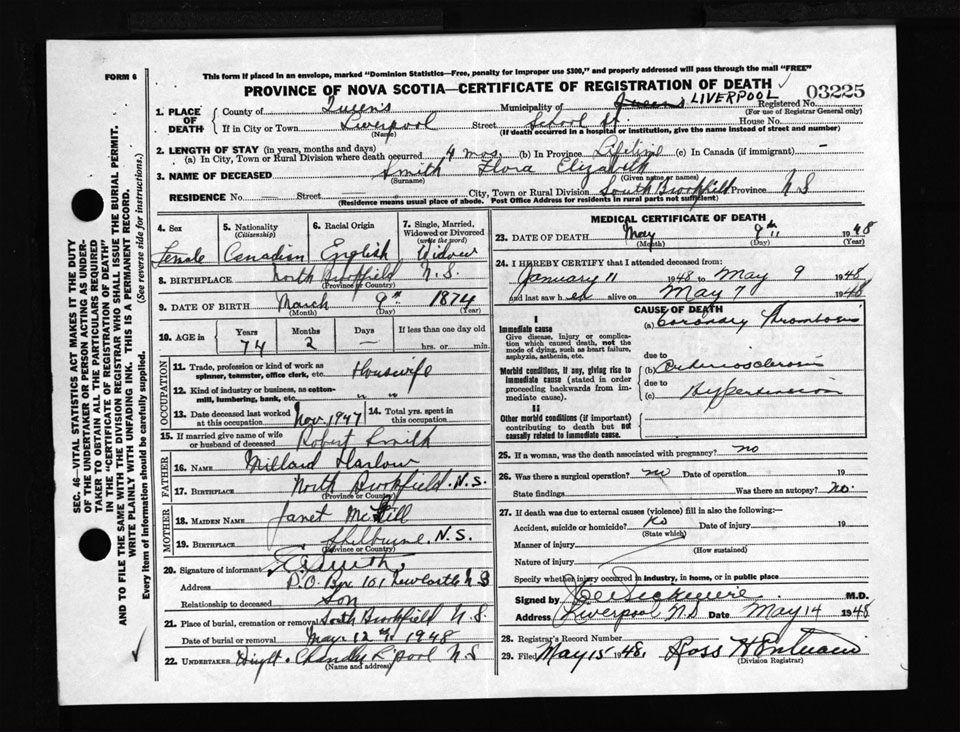 FORM 6
This form if placed in an envelope, marked "Dominion Statistics—Free, penalty for improper use $300," and properly addressed will pass through the mail "FREE"
PROVINCE OF NOVA SCOTIA—CERTIFICATE OF REGISTRATION OF DEATH
03225
1. PLACE OF DEATH
County of Queen's Municipality of Queens LIVERPOOL Registered No.
(For use of Registrar General only)
If in City or Town Liverpool Street School St. House No.
(Name) (If death occurred in a hospital or institution, give the name instead of street and number)
2. LENGTH OF STAY (in years, months and days)
(a) In City, Town or Rural Division where death occurred 4 mos. (b) In Province Lifetime (c) In Canada (if immigrant) —
3. NAME OF DECEASED Smith Flora Elizabeth
(Surname) (Given name or names)
RESIDENCE No. — Street City, Town or Rural Division South Brookfield Province N S
(Residence means usual place of abode. Post Office Address for residents in rural parts not sufficient)
4. Sex Female
5. Nationality (Citizenship) Canadian
6. Racial Origin English
7. Single, Married, Widowed or Divorced (write the word) Widow
8. BIRTHPLACE North Brookfield N.S.
(Province or Country)
9. DATE OF BIRTH March 9th 1874
(Month) (Day) (Year)
10. AGE in Years Months Days If less than one day old
74 2 — hrs. or min.
OCCUPATION
11. Trade, profession or kind of work as spinner, teamster, office clerk, etc. Housewife
12. Kind of industry or business, as cotton-mill, lumbering, bank, etc. " "
13. Date deceased last worked at this occupation Nov. 1947
14. Total yrs. spent in this occupation
15. If married give name of wife or husband of deceased Robert Smith
FATHER
16. NAME Millard Harlow
17. BIRTHPLACE North Brookfield. N.S.
(Province or Country)
MOTHER
18. MAIDEN NAME Janet McGill
19. BIRTHPLACE Shelburne. N.S.
(Province or Country)
20. Signature of informant Smith
Address P.O. Box 101 Newcastle N B
Relationship to deceased Son
21. Place of burial, cremation or removal South Brookfield N.S.
Date of burial or removal May 12th 1948
22. UNDERTAKER Chandler L'pool N S
(Name and address)
MEDICAL CERTIFICATE OF DEATH
23. DATE OF DEATH May 9th 1948
(Month) (Day) (Year)
24. I HEREBY CERTIFY that I attended deceased from:
January 11 1948 to May 9 1948
and last saw her alive on May 7 1948
CAUSE OF DEATH
I
Immediate cause
Give disease, injury or complication which caused death, not the mode of dying, such as heart failure, asphyxia, asthenia, etc.
(a) Coronary Thrombosis
due to
Morbid conditions, if any, giving rise to immediate cause (stated in order proceeding backwards from immediate cause).
(b) Arteriosclerosis
due to
(c) Hypertension
II
Other morbid conditions (if important) contributing to death but not causally related to immediate cause.
25. If a woman, was the death associated with pregnancy? no
26. Was there a surgical operation? no Date of operation 19
State findings Was there an autopsy? no.
27. If death was due to external causes (violence) fill in also the following:
Accident, suicide or homicide? No Date of injury 19
(State which)
Manner of injury
(How sustained)
Nature of injury
Specify whether injury occurred in industry, in home, or in public place
Signed by M.D.
Address Liverpool N.S Date May 14 1948
28. Registrar's Record Number
29. Filed May 15 1948. Ross H
(Division Registrar)
SEC. 46—VITAL STATISTICS ACT MAKES IT THE DUTY
OF THE UNDERTAKER OR PERSON ACTING AS UNDER-
TAKER TO OBTAIN ALL THE PARTICULARS REQUIRED
IN THE "CERTIFICATE OF REGISTRATION OF DEATH"
AND TO FILE THE SAME WITH THE DIVISION REGISTRAR WHO SHALL ISSUE THE BURIAL PERMIT.
WRITE PLAINLY WITH UNFADING INK. THIS IS A PERMANENT RECORD.
Every item of information should be carefully supplied. (See reverse side for instructions.)